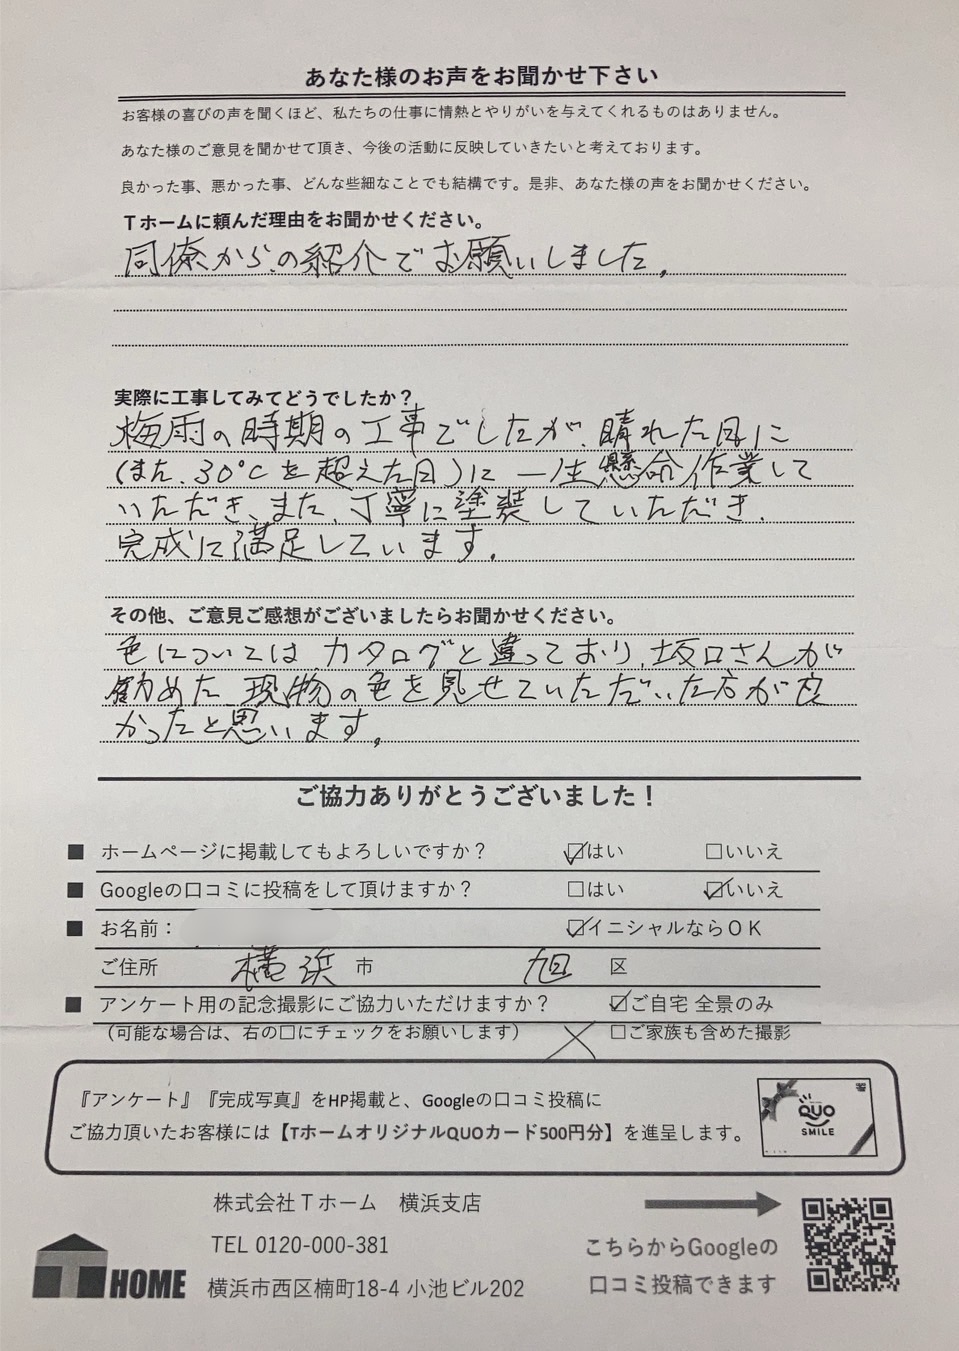 あなた様のお声をお聞かせ下さい
お客様の喜びの声を聞くほど、私たちの仕事に情熱とやりがいを与えてくれるものはありません。
あなた様のご意見を聞かせて頂き、今後の活動に反映していきたいと考えております。
良かった事、悪かった事、どんな些細なことでも結構です。是非、あなた様の声をお聞かせください。
Tホームに頼んだ理由をお聞かせください。
同僚からの紹介でお願いしました。
実際に工事してみてどうでしたか？
梅雨の時期の工事でしたが、晴れた日に
(また、30℃を超えた日)に一生懸命作業して
いただき、また、丁寧に塗装していただき、
完成に満足しています。
その他、ご意見ご感想がございましたらお聞かせください。
色については、カタログと違っており、坂口さんが
勧めた、現物の色を見せていただいた方が良
かったと思います。
ご協力ありがとうございました！
■ ホームページに掲載してもよろしいですか？ ☑はい □いいえ
■ Googleの口コミに投稿をして頂けますか？ □はい ☑いいえ
■ お名前： ☑イニシャルならOK
ご住所 横浜 市 旭 区
■ アンケート用の記念撮影にご協力いただけますか？ ☑ご自宅 全景のみ
（可能な場合は、右の□にチェックをお願いします） □ご家族も含めた撮影
『アンケート』『完成写真』をHP掲載と、Googleの口コミ投稿に
ご協力頂いたお客様には【TホームオリジナルQUOカード500円分】を進呈します。
QUO
SMILE
株式会社Tホーム 横浜支店
TEL 0120-000-381
横浜市西区楠町18-4 小池ビル202
T HOME
こちらからGoogleの
口コミ投稿できます